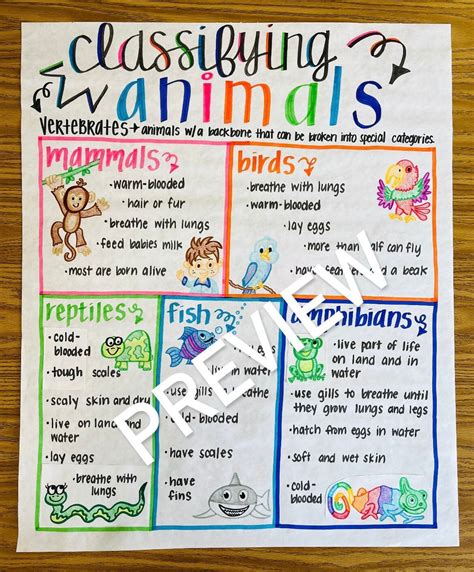 classifying
animals
vertebrates → animals w/a backbone that can be broken into special categories.
mammals
• warm-blooded
• hair or fur
• breathe with lungs
• feed babies milk
• most are born alive
birds
• breathe with lungs
• warm-blooded
• lay eggs
• more than half can fly
• have and a beak
reptiles
• cold-
blooded
• tough scales
• scaly skin and dry
• live on land and
water
• lay eggs
• breathe with
lungs
fish
eggs
live in water
• use gills to breathe
• cold-blooded
• have scales
• have
fins
amphibians
• live part of life
on land and in
water
• use gills to breathe until
they grow lungs and legs
• hatch from eggs in water
• soft and wet skin
• cold-
blooded
PREVIEW